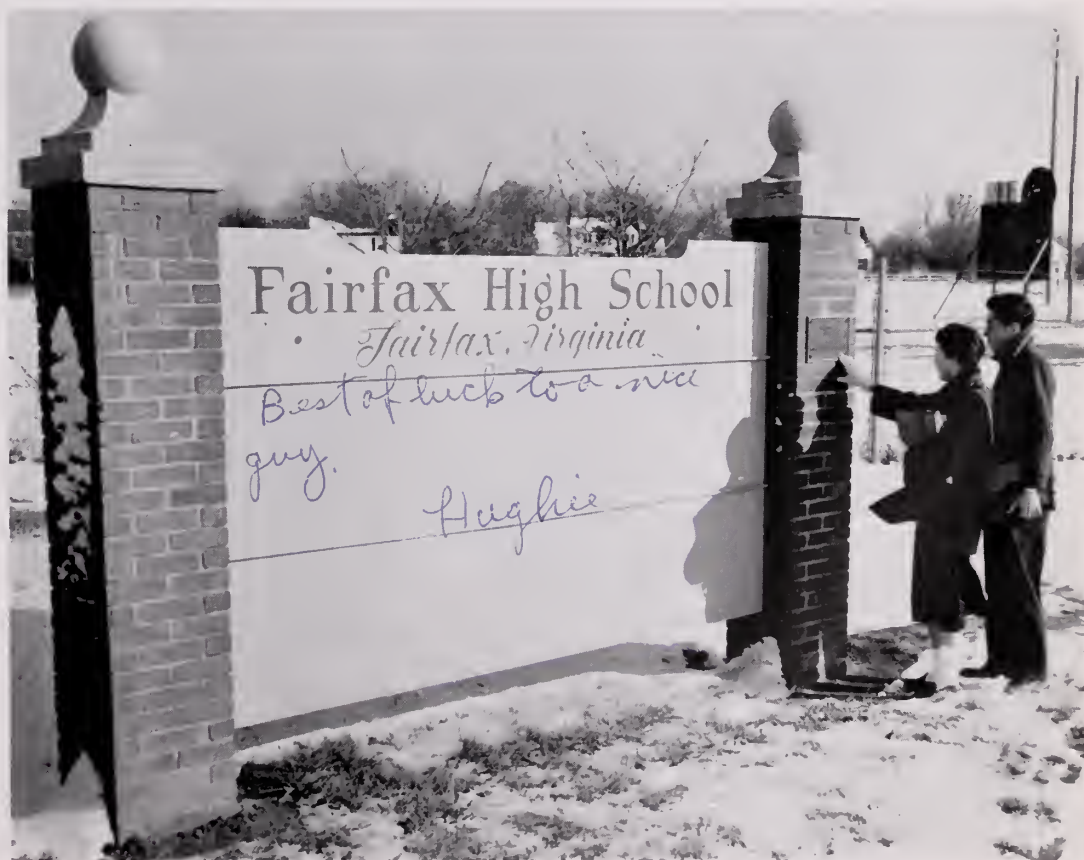 Fairfax High School
Fairfax, Virginia
Best of luck to a nice
guy.
Hughie